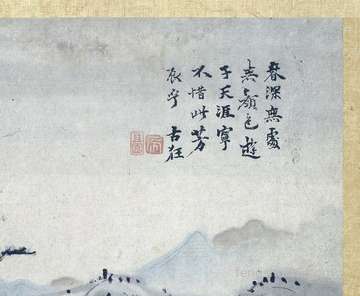 春深無處
無顔色遊
子天涯寧
不惜此芳
辰乎 古狂